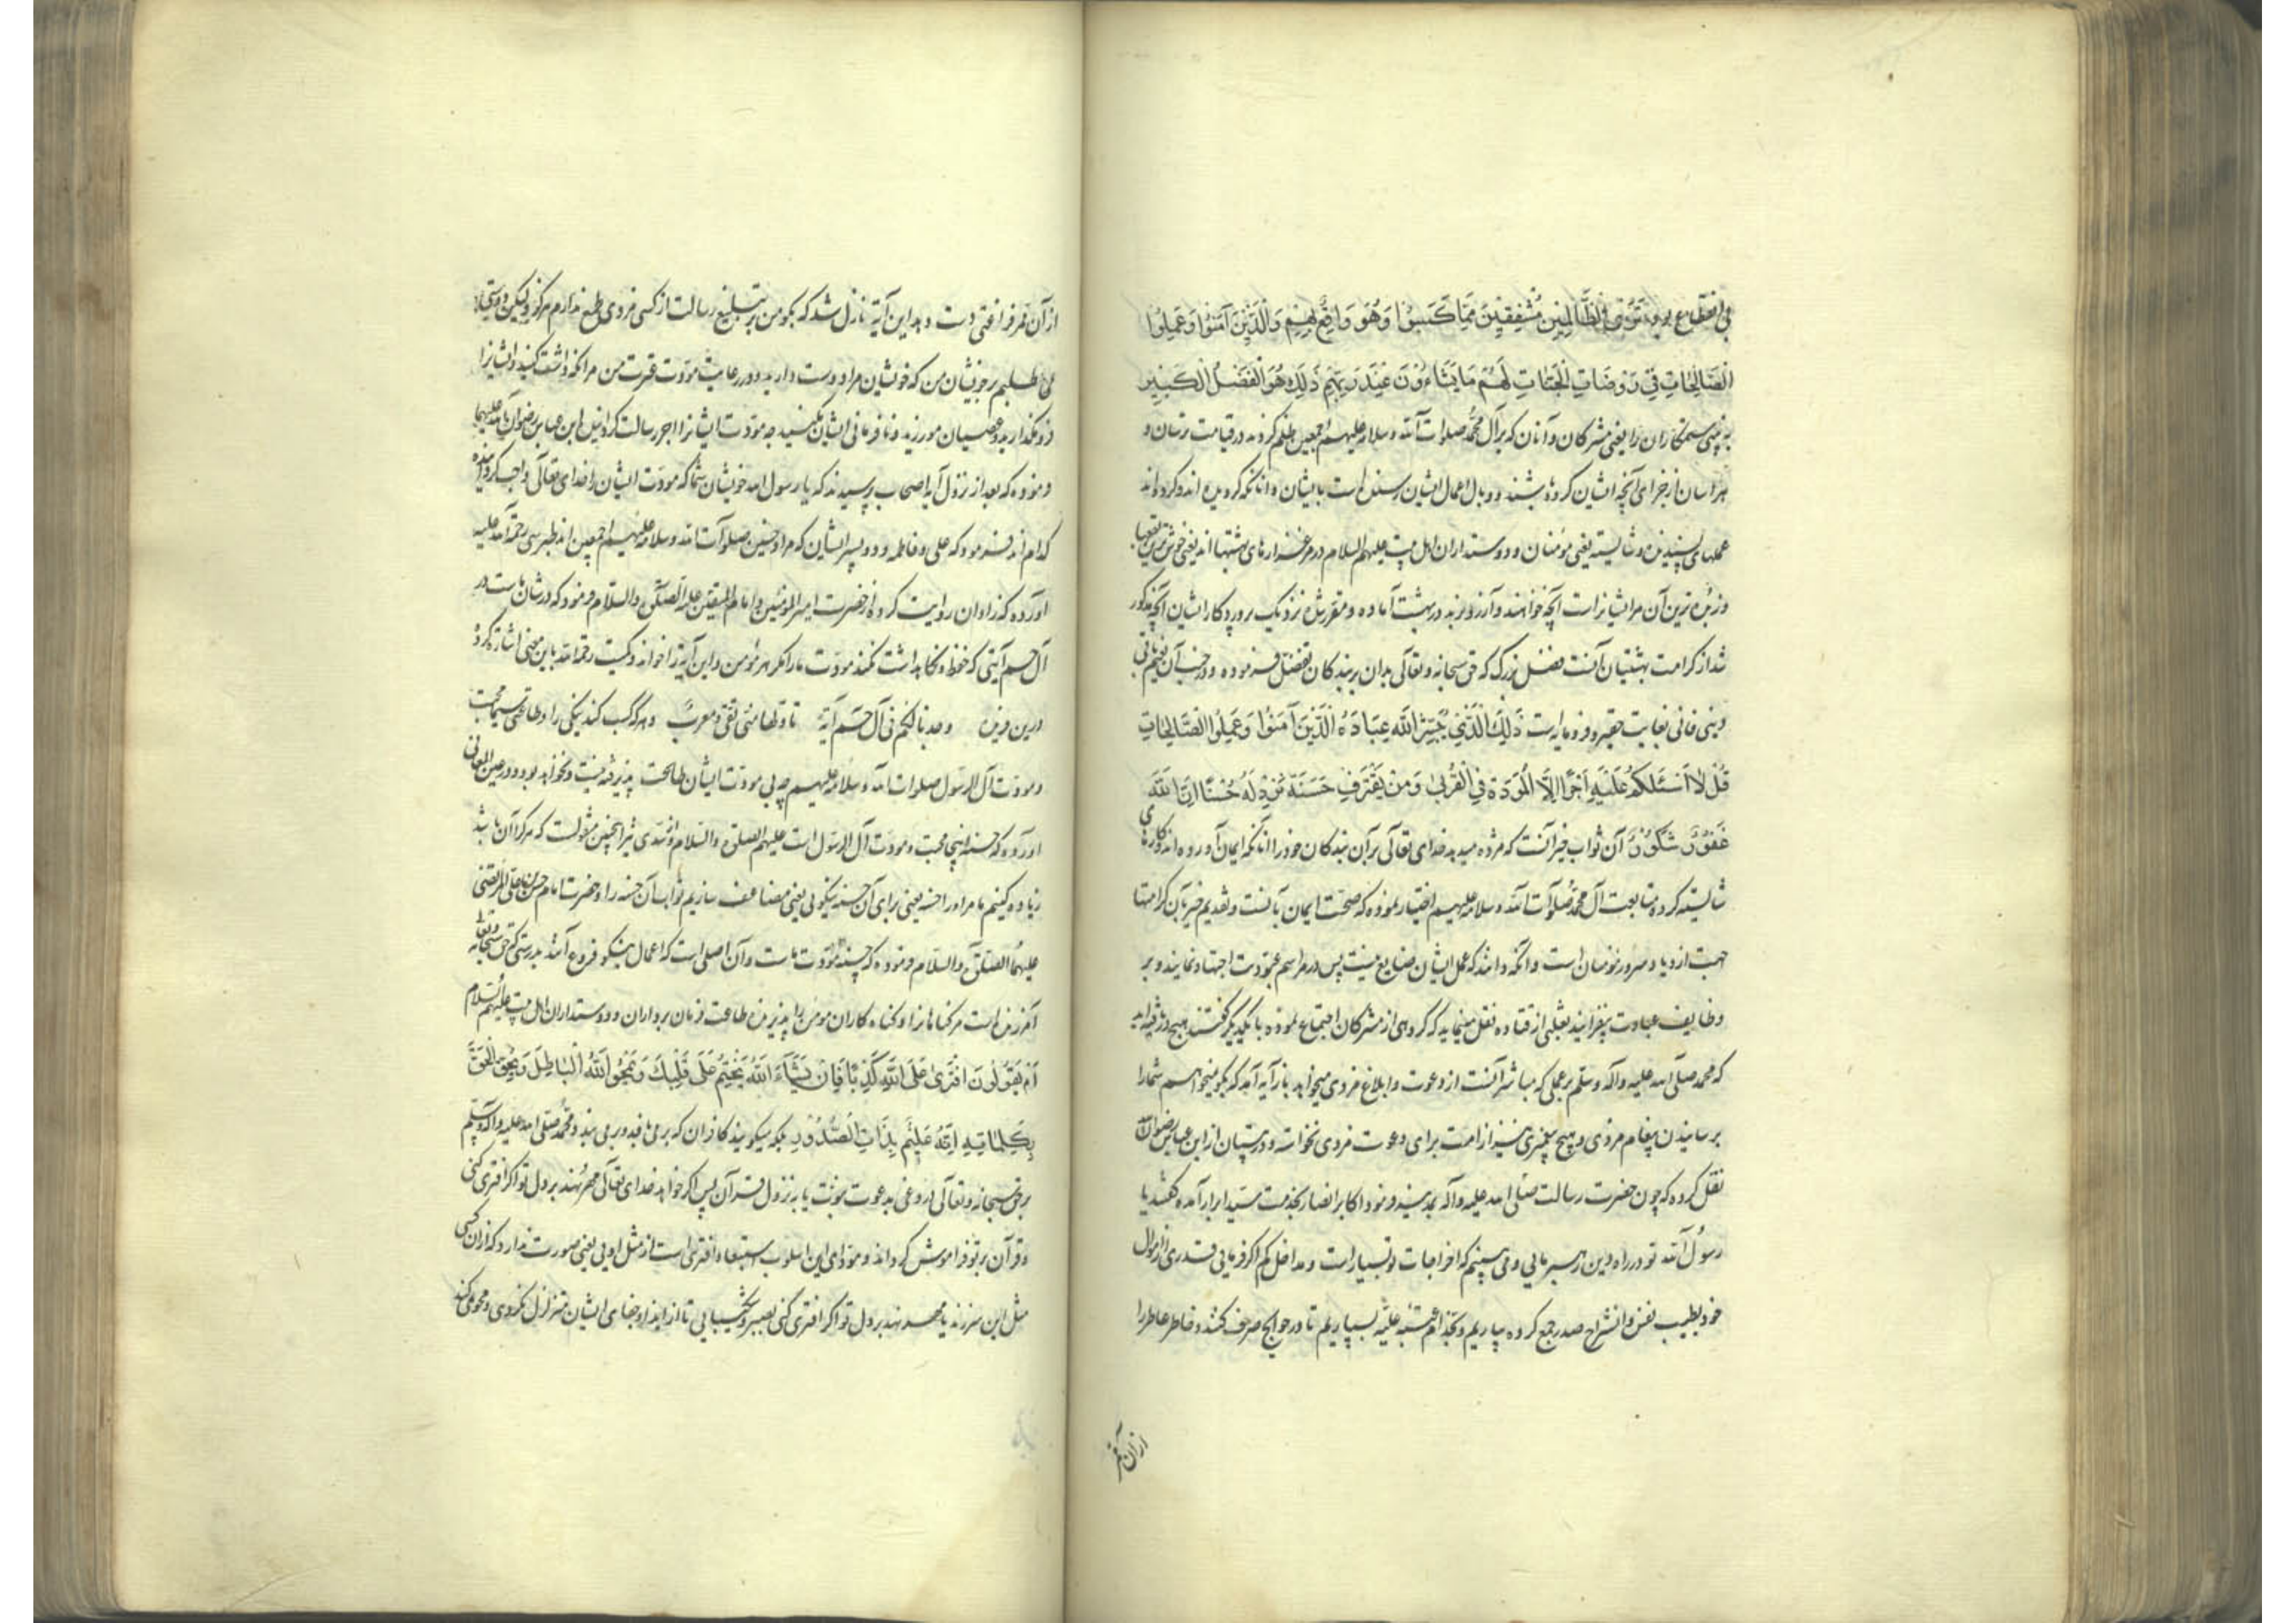 تَرَى الظَّالِمِينَ مُشْفِقِينَ مِمَّا كَسَبُوا وَهُوَ وَاقِعٌ بِهِمْ وَالَّذِينَ آمَنُوا وَعَمِلُوا
الصَّالِحَاتِ فِي رَوْضَاتِ الْجَنَّاتِ لَهُمْ مَا يَشَاءُونَ عِنْدَ رَبِّهِمْ ذَلِكَ هُوَ الْفَضْلُ الْكَبِيرُ
به بینی ستمکاران را یعنی مشرکان و آنان که بر آل محمد صلوات الله و سلامه علیهم اجمعین ظلم کردند در قیامت ترسان و
هراسان از جزای آنچه ایشان کرده باشند و وبال اعمال ایشان رسنده است بایشان و آنانکه گرویده اند و کرده اند
عملهای پسندیده و شایسته یعنی مؤمنان و دوستداران اهل بیت علیهم السلام در مرغزارهای بهشتها اند یعنی خوش ترین بقعها
و نزه ترین آن مر ایشانراست آنچه خواهند و آرزو برند در بهشت آماده و مقرر شده نزدیک پروردگار ایشان آنچه مذکور
شد از کرامت بهشتیان آنست فضل بزرگ که حق سبحانه و تعالی بدان بر بندگان تفضل فرموده و در جنب آن نعیم باقی
دنیی فانی بغایت حقیر و فرومایه است ذَلِكَ الَّذِي يُبَشِّرُ اللَّهُ عِبَادَهُ الَّذِينَ آمَنُوا وَعَمِلُوا الصَّالِحَاتِ
قُلْ لَا أَسْئَلُكُمْ عَلَيْهِ أَجْرًا إِلَّا الْمَوَدَّةَ فِي الْقُرْبَى وَمَنْ يَقْتَرِفْ حَسَنَةً نَزِدْ لَهُ حُسْنًا إِنَّ اللَّهَ
غَفُورٌ شَكُورٌ آن ثواب خیر آنست که مژده میدهد خدای تعالی بر آن بندگان خود را آنانکه ایمان آورده اند و کارهای
شایسته کرده متابعت آل محمد صلوات الله و سلامه علیهم اختیار نموده که صحت ایمان بآنست و تقدیم خبر بآن کرامتها
جهت ازدیاد سرور مؤمنان است و آنکه دانند که عمل ایشان ضایع نیست پس در مراسم عبودیت اجتهاد نمایند و بر
وظایف عبادت بیفزایند ثعلبی از قتاده نقل مینماید که گروهی از مشرکان اجتماع نموده با یکدیگر گفتند هیچ در
که محمد صلی الله علیه و آله و سلم بر عملی که مباشر آنست از دعوت و ابلاغ مزدی میخواهد یا نه آیه آمد که بگو نمیخواهم شما را
برسانیدن پیغام مزدی و هیچ پیغمبری نیز از امت برای دعوت مزدی نخواسته و در تبیان از ابن عباس رضوان الله
نقل کرده که چون حضرت رسالت صلی الله علیه و آله بمدینه فرمود اکابر انصار بخدمت سید ابرار آمده گفتند یا
رسول الله تو در راه دین رهبر مایی و می بینیم که اخراجات تو بسیار است و مداخل کم اگر فرمایی قدری از اموال
خود بطیب نفس و انشراح صدر جمع کرده بیاریم و بخدام عتبه علیه بسپاریم تا در حوایج صرف کنند و خاطر عاطر را
از آن ممر
از آن ممر فراغتی دست دهد این آیة نازل شد که بگو من بر تبلیغ رسالت از کسی مزدی طمع ندارم هرگز ولیکن دوستی
می طلبم بر خویشان من که خویشان مرا دوست دارید و در رعایت مودت عترت من مرا نگه داشت کنید و ایشانرا
فرو نگذارید و عصیان مورزید و نافرمانی ایشان مکنید چه مودت ایشانرا اجر رسالت گردانید ابن عباس رضوان الله علیهما
فرموده که بعد از نزول آیه اصحاب پرسیدند که یا رسول الله خویشان شما که مودت ایشان را خدای تعالی واجب گردانیده
کدام اند فرمود که علی و فاطمه و دو پسر ایشان که مراد حسنین صلوات الله و سلامه علیهم اجمعین اند طبرسی رحمة الله علیه
آورده که زاذان روایت کرده از حضرت امیر المؤمنین و امام المتقین علیه الصلوة والسلام فرمود که در شان ماست در
آل حم آیتی که حفظ و نگاه داشت نکند مودت ما را مگر هر مؤمن و این آیة را خواند و کمیت رحمة الله باین معنی اشاره کرده
درین وزن وجدنا لکم فی آل حم آیة تاولها منا تقی و معرب و هر که کسب کند نیکی را و طاعتی سیما محبت
و مودت آل الرسول صلوات الله و سلامه علیهم چه بی مودت ایشان طاعت پذیرفته نیست و نخواهد بود و در عین المعانی
آورده که حسنه اینجا محبت و مودت آل الرسول است علیهم الصلوة والسلام و از سدی نیز اینچنین منقول است که هر کرا آن باشد
زیاده کنیم ما مر او را حسنه یعنی برای آن حسنه نیکویی یعنی مضاعف سازیم ثواب آن حسنه را و حضرت امام حسن بن علی المرتضی
علیهما الصلوة والسلام فرموده که حسنه مودت ماست و آن اصلی است که اعمال نیکو فروع آنند بدرستی که حق سبحانه و تعالی
آمرزنده است مر گناهانرا و گناه کاران مومن را پذیرنده طاعت فرمان برداران و دوستداران اهل بیت علیهم السلام
أَمْ يَقُولُونَ افْتَرَى عَلَى اللَّهِ كَذِبًا فَإِنْ يَشَاءِ اللَّهُ يَخْتِمْ عَلَى قَلْبِكَ وَيَمْحُ اللَّهُ الْبَاطِلَ وَيُحِقُّ الْحَقَّ
بِكَلِمَاتِهِ إِنَّهُ عَلِيمٌ بِذَاتِ الصُّدُورِ بلکه میگویند کافران که بر می بافد و بر می بندد محمد صلی الله علیه و آله و سلم
بر حق سبحانه و تعالی دروغی بدعوت نبوت یا به نزول قرآن پس اگر خواهد خدای تعالی مهر نهد بر دل تو اگر افتری کنی
و قرآن بر تو فراموش گرداند و مؤدای این اسلوب استبعاد افتری است از مثل اویی یعنی صورت ندارد که از آن کسی
مثل این سر زند یا مهر نهد بر دل تو اگر افتری کنی بصبر و شکیبایی تا از ایذا و جفای ایشان متزلزل نگردی و محو می کند